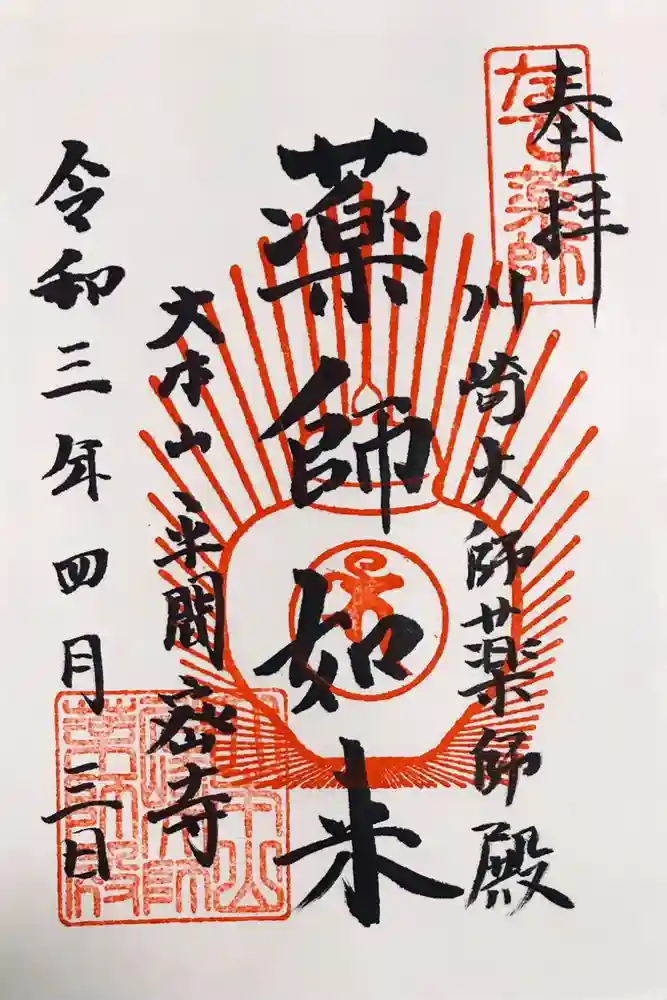 奉拝
なで薬師
川崎大師薬師殿
薬師如来
大本山
平間密寺
令和三年四月三日